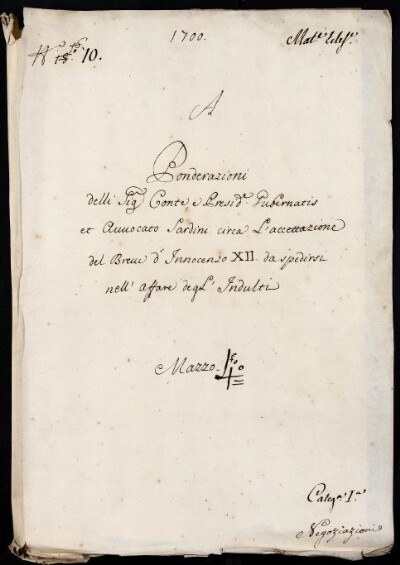 1700.
Mat.ᵉ Eclesᵉ.
N.° 10.
A
Ponderazioni
delli Sigʳⁱ Conte e Presidᵉ Gubernatis
et Avvocato Sardini circa L'accettazione
del Breve d'Innocenzo XII. da spedirsi
nell'affare degl'Indulti
Mazzo
Categᵃ Iᵃ
Negoziazioni